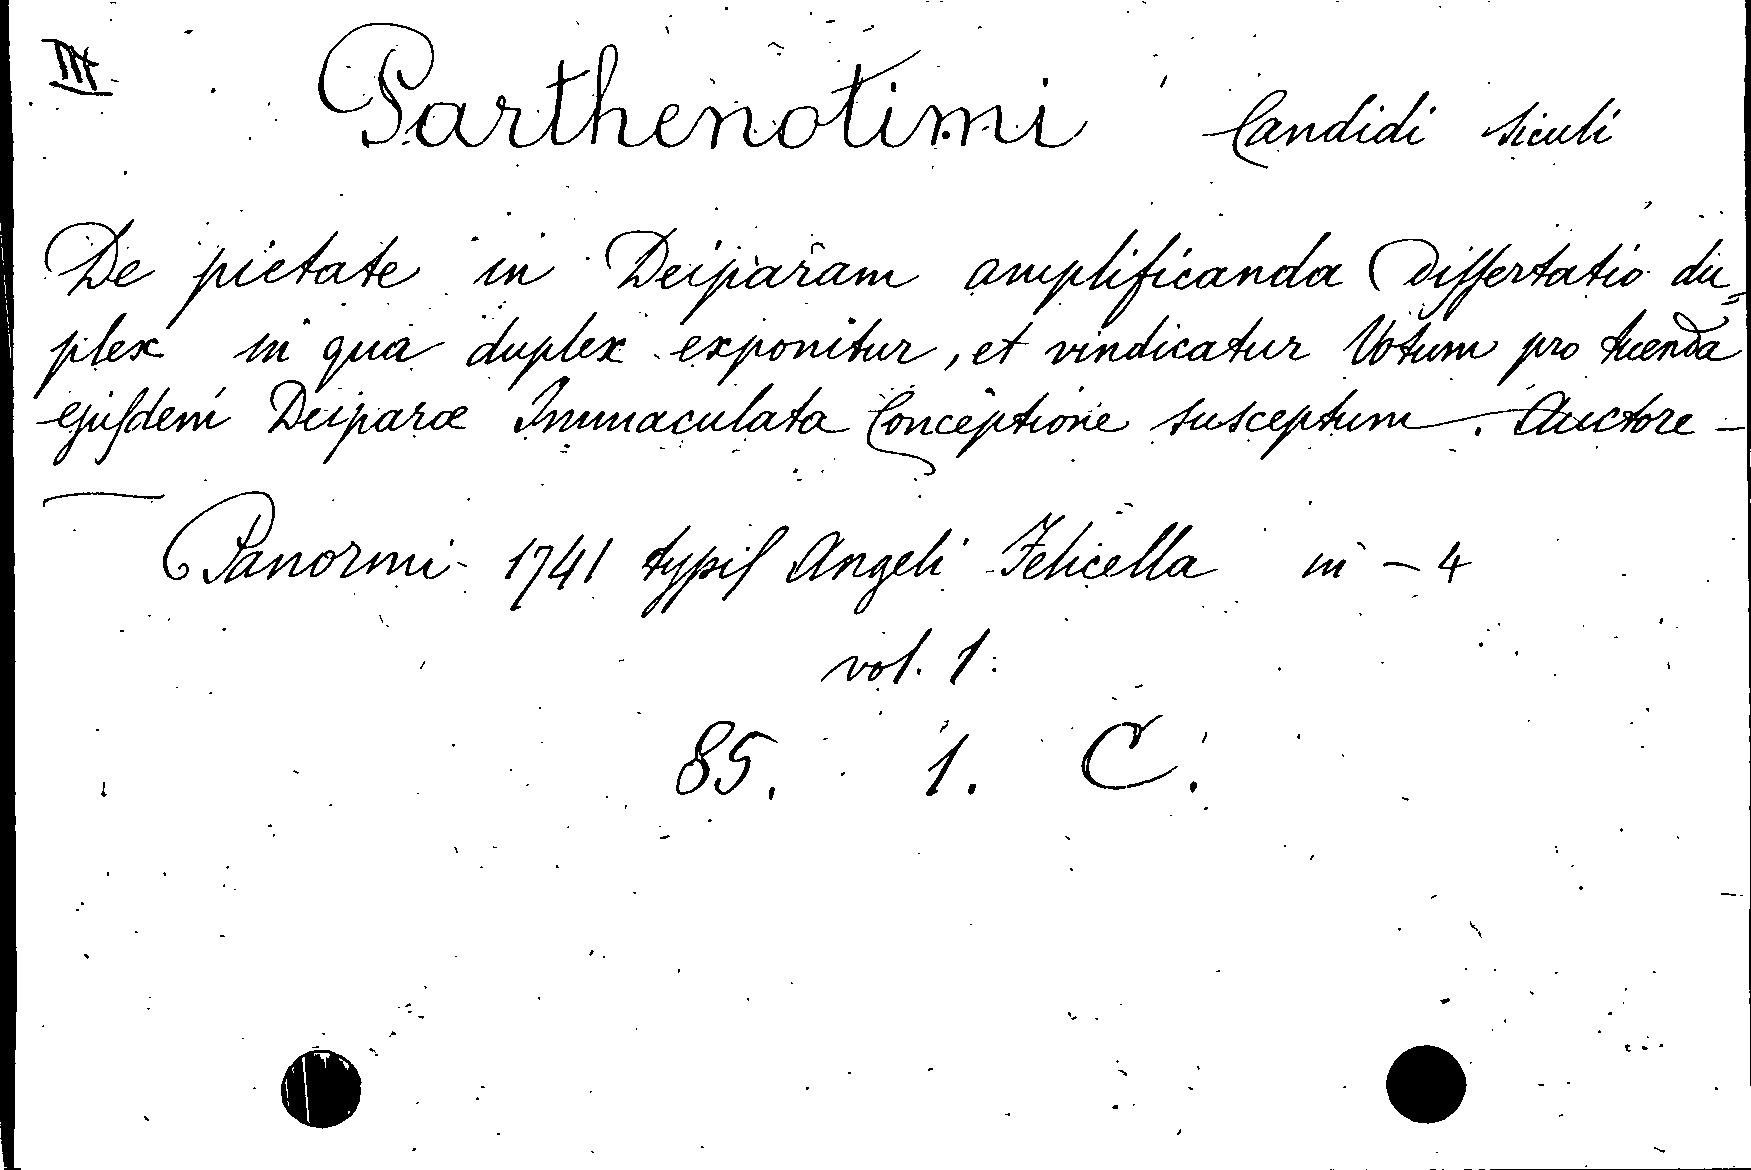 III
Parthenotimi Candidi siculi
De pietate in Deiparam amplificanda Dissertatio du=
plex in qua duplex exponitur, et vindicatur Votum pro tuenda
ejusdem Deiparæ Immaculata Conceptione susceptum. Auctore -
Panormi 1741 typis Angeli Felicella in - 4
vol. 1.
85. 1. C.